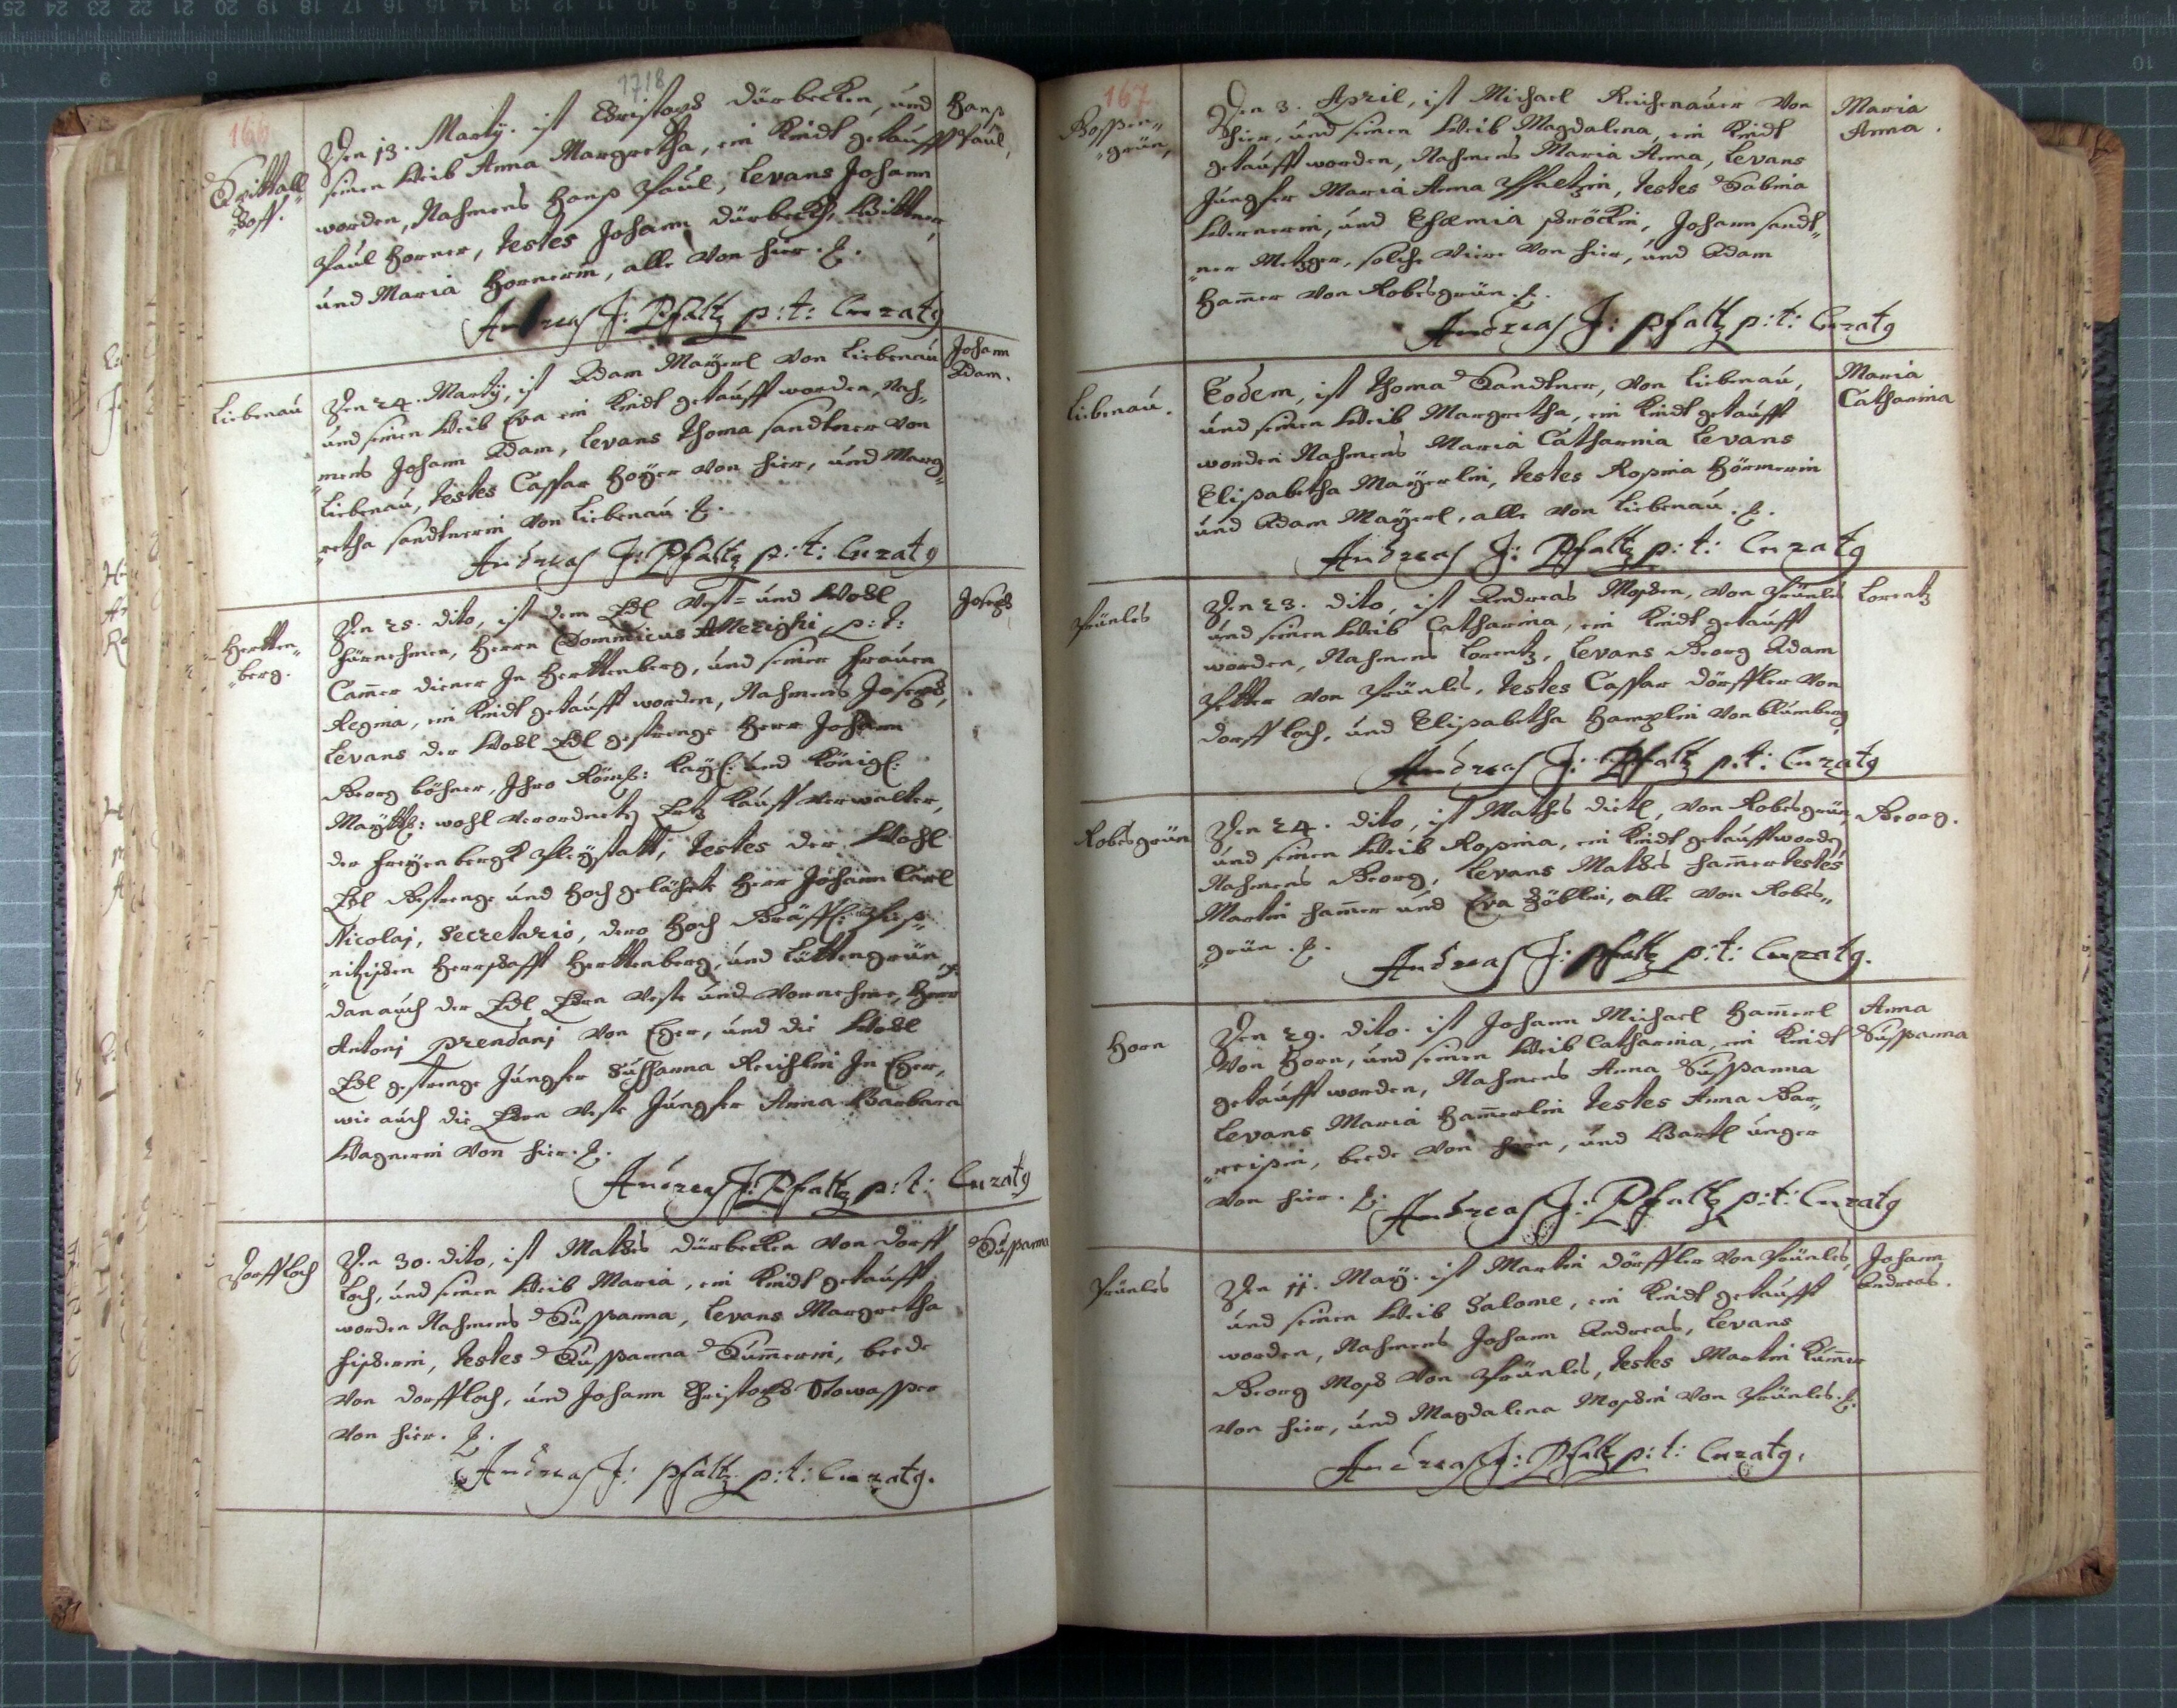 1718
166
Den 13. Martÿ. ist Christoph dürbecken, und
seinen Weib Anna Margretha, ein Kindt getaufft
worden, Nahmens Hanß Paul, Levans Johann
Paul Horner, testes Johann dürbeck,
und Maria Hornerin, alle von hier.
Hanß
Paul,
Andreas J: Pfaltz p: t: Curatg
Liebenau
Den 24. Martÿ, ist Adam Maÿerl von Liebenau
und seinen Weib Eva ein Kindt getaufft worden, Nah„
„mens Johann Adam, Levans Thoma Sandtner von
Liebenau, testes Caspar Hoÿer von hier, und Marg„
„retha Sandtnerin von Liebenau.
Johann
Adam.
Andreas J: Pfaltz p: t: Curatg
Hertten„
„berg.
Den 25. dito, ist dem Edl Vest= und Wohl
fürnehmen, Herrn Dominicus Allerighi p: t:
Cam̅er diener In Herttenberg, und seiner Frauen
Regina, ein Kindt getaufft worden, Nahmens Joseph,
Levans der Wohl Edl gestrenge Herr Johann
Georg böhner, Ihro Röml: Kaÿl: und Königl:
Maÿtt: wohl verordneter Ertz Kauff verwalter,
der freÿen bergk Pleÿstatt, testes der Wohl
Edl Gestrenge und Hoch gelährte Herr Johann Carl
Nicolai, Secretario, dero Hoch Gräffl:
Herrschafft Herttenberg, und Littengrün,
dan auch der Edl Ehrn Veste und Vornehme, Herr
Antonj prendanj von Eger, und die Wohl
Edl gestrenge Jungfer Susanna Reichlin In Eger,
wie auch die Ehrn Veste Jungfer Anna Barbara
Wagnerin von hier.
Joseph
Andreas J: Pfaltz p: t: Curatg
Dorffloch
Den 30. dito, ist Mathes dürbecken von Dorff
loch, und seinen Weib Maria, ein Kindt getaufft
worden Nahmens Sußanna, Levans Margretha
Fischerin, testes Sußanna Sum̅erin, beede
von dorffloch, und Johann Christoph Stowasser
von hier.
Sußanna
Andreas J: Pfaltz p: t: Curatg.
167
„grün,
Den 3. April, ist Michael Reichenauer von
hier, und seinen Weib Magdalena, ein Kindt
getaufft worden, Nahmens Maria Anna, Levans
Jungfer Maria Anna Pfaltzin, testes Sabina
Wernerin, und Efæmia Bröckin, Johann Sandt„
„ner Metzger, solche viere von hier, und Adam
Ham̅er von Robesgrün.
Maria
Anna.
Andreas J: Pfaltz p: t: Curatg
Liebenau.
Eodem, ist Thoma Sandtner, von Liebenau,
und seinen Weib Margretha, ein Kindt getaufft
worden Nahmens Maria Catharina Levans
Elisabetha Maÿerlin, testes Rosina Hörnerin
und Adam Maÿerl, alle von Liebenau.
Maria
Catharina
Andreas J: Pfaltz p: t: Curatg
Prünles
Den 23. dito, ist Andreas Mosch, von Prünles
und seinen Weib Catharina, ein Kindt getaufft
worden, Nahmens Lorentz, Levans Georg Adam
von Prünles, testes Caspar dörffler von
dorffloch, und Elisabetha Hamplin von blumberg
Lorentz
Andreas J: Pfaltz p: t: Curatg
Robesgrün
Den 24. dito, ist Mathes dietl, von Robesgrün
und seinen Weib Rosina, ein Kindt getaufft worden
Nahmens Georg, Levans Mathes Ham̅er testes
Martin Ham̅er und Eva Zöblin, alle von Robes„
„grün.
Georg.
Andreas J: Pfaltz p: t: Curatg.
Horn
Den 29. dito. ist Johann Michael Ham̅erl
von Horn, und seinen Weib Catharina, ein Kindt
getaufft worden, Nahmens Anna Sußanna
Levans Maria Ham̅erlin testes Anna Bar„
beede von Horn, und Bartl unger
von hier.
Anna
Sußanna
Andreas J: Pfaltz p: t: Curatg
Prünles
Den 11. Maÿ. ist Martin dörffler von Prünles,
und seinen Weib Salome, ein Kindt getaufft
worden, Nahmens Johann Andreas, Levans
Georg Mosch von Prünles, testes Martin Kum̅er
von hier, und Magdalena Moschin von Prünles.
Johann
Andreas.
Andreas J: Pfaltz p: t: Curatg.